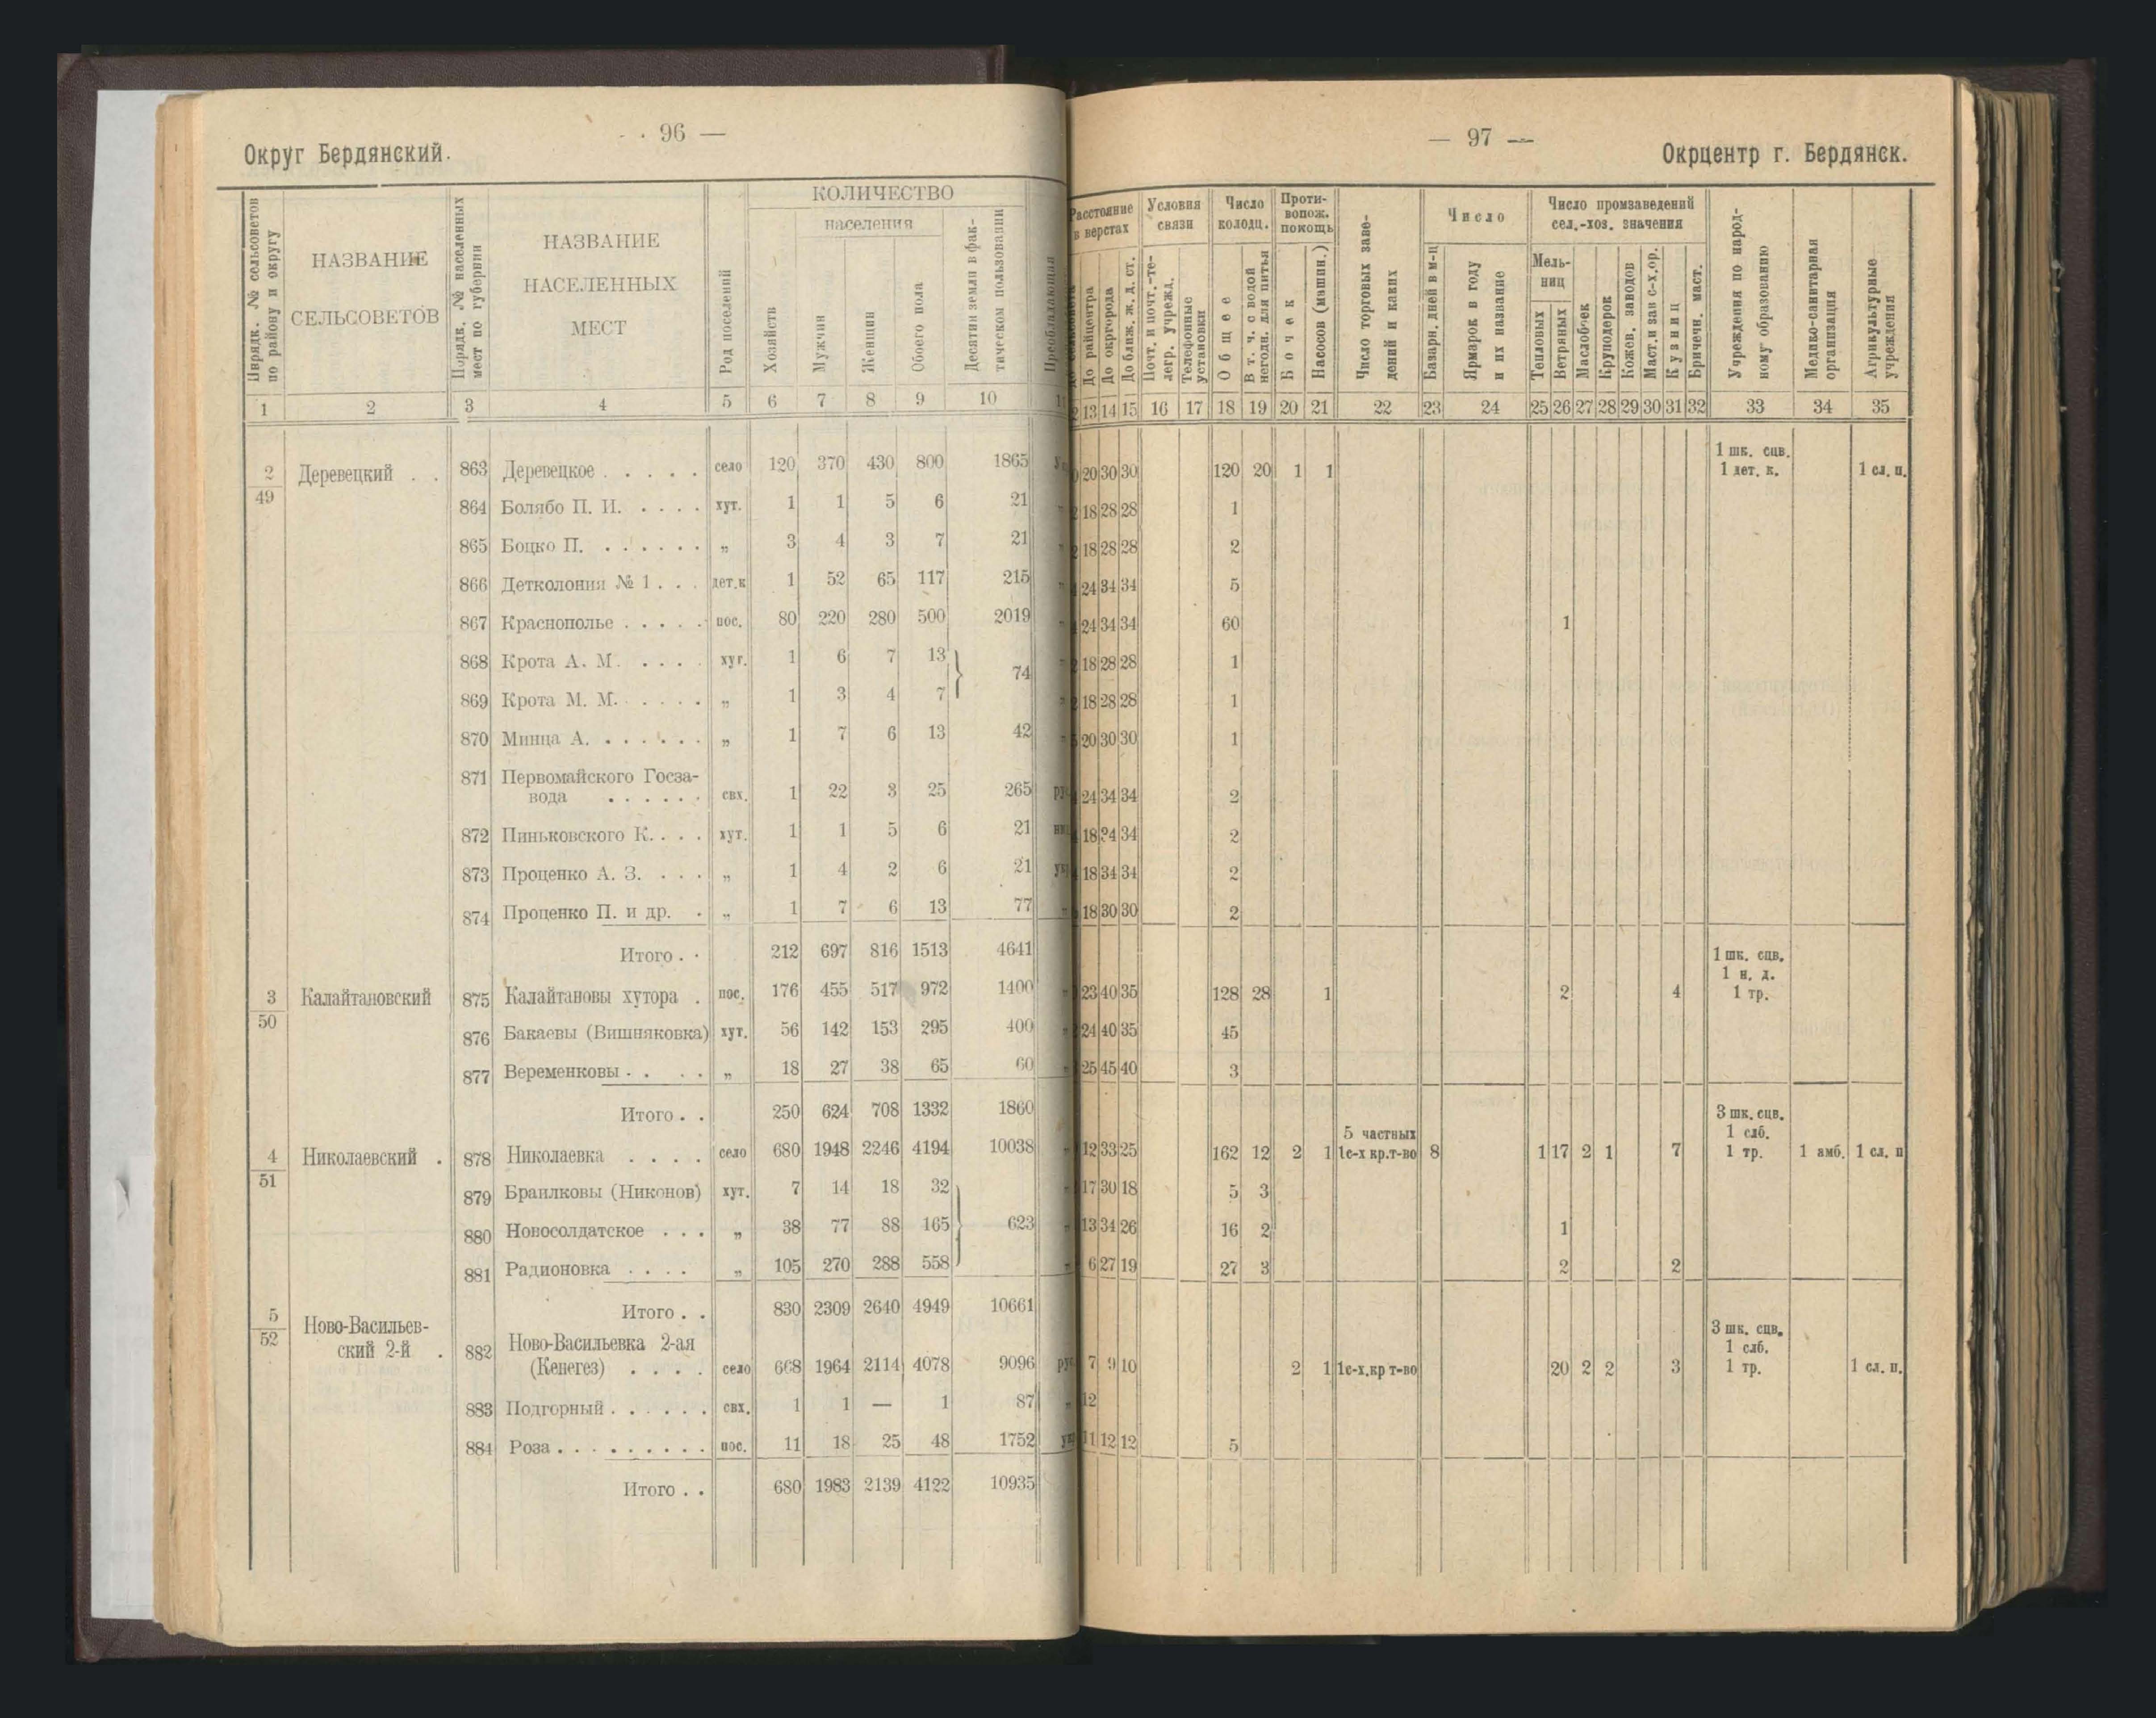 96 —
Округ Бердянский.
Порядк. № сельсоветов по району и округу
НАЗВАНИЕ СЕЛЬСОВЕТОВ
Порядк. № населенных мест по губернии
НАЗВАНИЕ НАСЕЛЕННЫХ МЕСТ
Род поселений
КОЛИЧЕСТВО
населения
Хозяйств
Мужчин
Женщин
Обоего пола
Десятин земли в фактическом пользовании
Преобладающая
1 2 3 4 5 6 7 8 9 10 11
2/49 Деревецкий . . 863 Деревецкое . . . . . село 120 370 430 800 1865
864 Болябо П. И. . . . . хут. 1 1 5 6 21 „
865 Боцко П. . . . . . . „ 3 4 3 7 21 „
866 Детколония № 1 . . . дет.к 1 52 65 117 215 „
867 Краснополье . . . . . пос. 80 220 280 500 2019 „
868 Крота А. М. . . . . хут. 1 6 7 13 } 74 „
869 Крота М. М. . . . . „ 1 3 4 7 „
870 Минца А. . . . . . . „ 1 7 6 13 42 „
871 Первомайского Госза-
вода . . . . . . свх. 1 22 3 25 265 рус
872 Пиньковского К. . . . хут. 1 1 5 6 21
873 Проценко А. З. . . . „ 1 4 2 6 21 укр
874 Проценко П. и др. . „ 1 7 6 13 77 „
Итого . . 212 697 816 1513 4641
3/50 Калайтановский 875 Калайтановы хутора . пос. 176 455 517 972 1400 „
876 Бакаевы (Вишняковка) хут. 56 142 153 295 400 „
877 Веременковы . . . . „ 18 27 38 65 60 „
Итого . . 250 624 708 1332 1860
4/51 Николаевский . 878 Николаевка . . . . село 680 1948 2246 4194 10038 „
879 Браилковы (Никонов) хут. 7 14 18 32 } 623 „
880 Новосолдатское . . . „ 38 77 88 165 „
881 Радионовка . . . . „ 105 270 288 558 „
Итого . . 830 2309 2640 4949 10661
5/52 Ново-Васильев-
ский 2-й . 882 Ново-Васильевка 2-ая
(Кенегез) . . . . село 668 1964 2114 4078 9096 рус
883 Подгорный . . . . . . свх. 1 1 — 1 87 „
884 Роза . . . . . . . . . пос. 11 18 25 48 1752 укр
Итого . . 680 1983 2139 4122 10935
— 97 —
Окрцентр г. Бердянск.
Расстояние в верстах
До райцентра
До окргорода
До ближ. ж. д. ст.
Условия связи
Почт. и почт.-телегр. учрежд.
Телефонные установки
Число колодц.
Общее
В т. ч. с водой негодн. для питья
Противопож. помощь
Бочек
Насосов (машин.)
Число торговых заведений и каких
Число
Базарн. дней в м-ц
Ярмарок в году и их название
Число промзаведений сел.-хоз. значения
Мельниц
Тепловых
Ветряных
Маслобоек
Круподерок
Кожев. заводов
Маст.и зав с-х.ор.
Кузниц
Бричечн. маст.
Учреждения по народному образованию
Медико-санитарная организация
Агрикультурные учреждения
13 14 15 16 17 18 19 20 21 22 23 24 25 26 27 28 29 30 31 32 33 34 35
1 шк. сцв.
20 30 30 120 20 1 1 1 дет. к. 1 сл. п.
18 28 28 1
18 28 28 2
24 34 34 5
24 34 34 60 1
18 28 28 1
18 28 28 1
20 30 30 1
24 34 34 2
18 24 34 2
18 34 34 2
18 30 30 2
1 шк. сцв.
1 н. д.
23 40 35 128 28 1 2 4 1 тр.
24 40 35 45
25 45 40 3
3 шк. сцв.
5 частных 1 слб.
12 33 25 162 12 2 1 1с-х кр.т-во 8 1 17 2 1 7 1 тр. 1 амб. 1 сл. п
17 30 18 5 3
13 34 26 16 2 1
6 27 19 27 3 2 2
3 шк. сцв.
1 слб.
7 9 10 2 1 1с-х.кр т-во 20 2 2 3 1 тр. 1 сл. п.
12
11 12 12 5